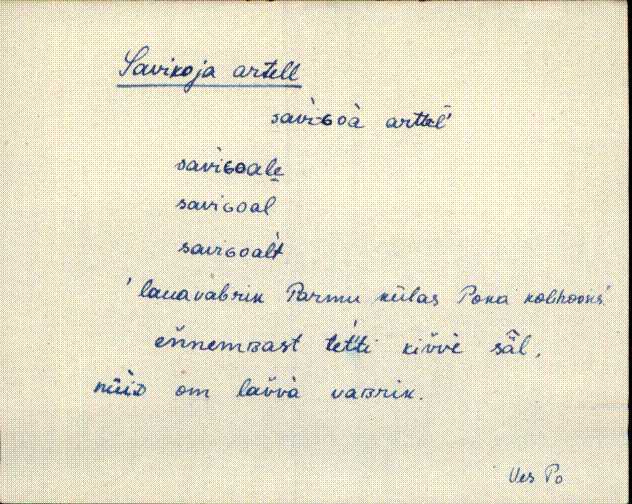 Savikoja artell
saviGoà artèl'
saviGoale
saviGoal
saviGoalt
'lauavabrik Parmu külas Poka kolhoosis'
ënnemBast tet'ti kivvè säl,
nüiD om lavvà vaBrik.
Ves Po